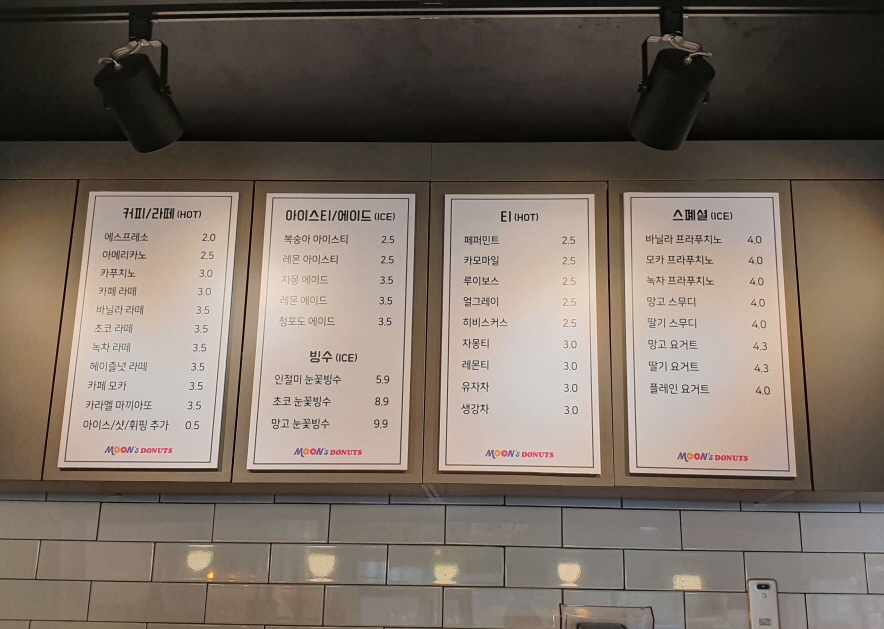 커피/라떼 (HOT)
에스프레소 2.0
아메리카노 2.5
카푸치노 3.0
카페 라떼 3.0
바닐라 라떼 3.5
초코 라떼 3.5
녹차 라떼 3.5
헤이즐넛 라떼 3.5
카페 모카 3.5
카라멜 마끼아또 3.5
아이스/샷/휘핑 추가 0.5
MOON's DONUTS
아이스티/에이드 (ICE)
복숭아 아이스티 2.5
레몬 아이스티 2.5
자몽 에이드 3.5
레몬 에이드 3.5
청포도 에이드 3.5
빙수 (ICE)
인절미 눈꽃빙수 5.9
초코 눈꽃빙수 8.9
망고 눈꽃빙수 9.9
MOON's DONUTS
티 (HOT)
페퍼민트 2.5
카모마일 2.5
루이보스 2.5
얼그레이 2.5
히비스커스 2.5
자몽티 3.0
레몬티 3.0
유자차 3.0
생강차 3.0
MOON's DONUTS
스페셜 (ICE)
바닐라 프라푸치노 4.0
모카 프라푸치노 4.0
녹차 프라푸치노 4.0
망고 스무디 4.0
딸기 스무디 4.0
망고 요거트 4.3
딸기 요거트 4.3
플레인 요거트 4.0
MOON's DONUTS